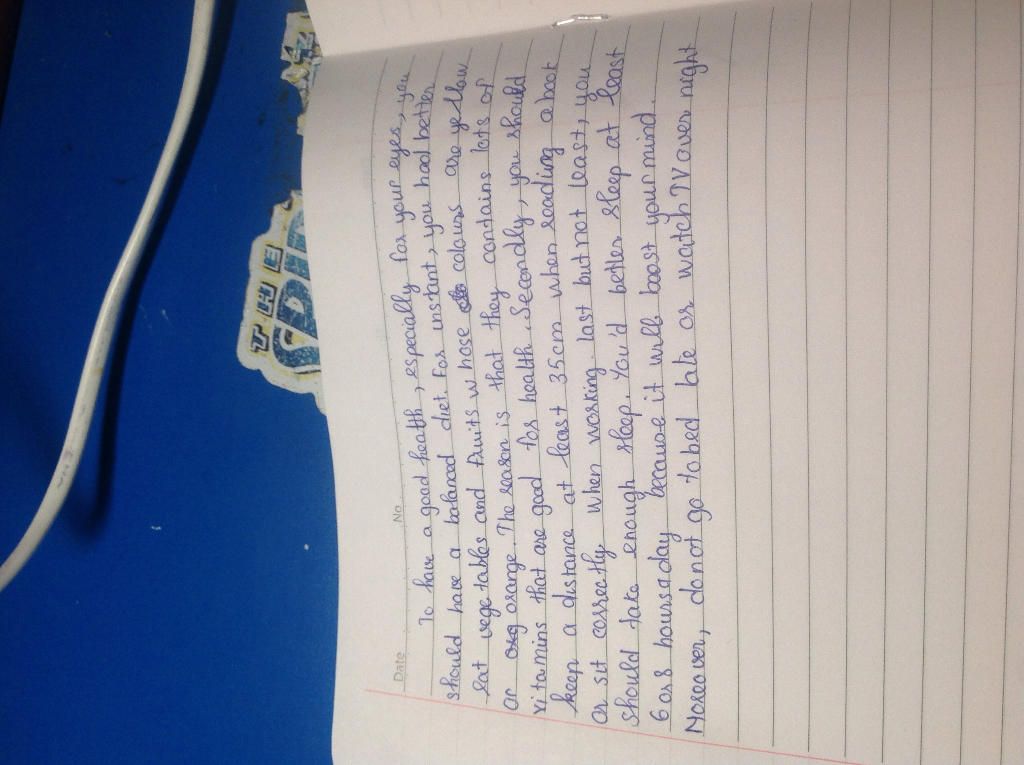 THE
Date
No
To have a good health, especially for your eyes, you
should have a balanced diet. For instant, you had better
eat vegetables and fruits whose colours are yellow
or orange. The reason is that they contains lots of
vitamins that are good for health. Secondly, you should
keep a distance at least 35cm when reading a book
or sit correctly when working. last but not least, you
should take enough sleep. You'd better sleep at least
6 or 8 hours a day because it will boost your mind.
Moreover, donot go to bed late or watch TV over night